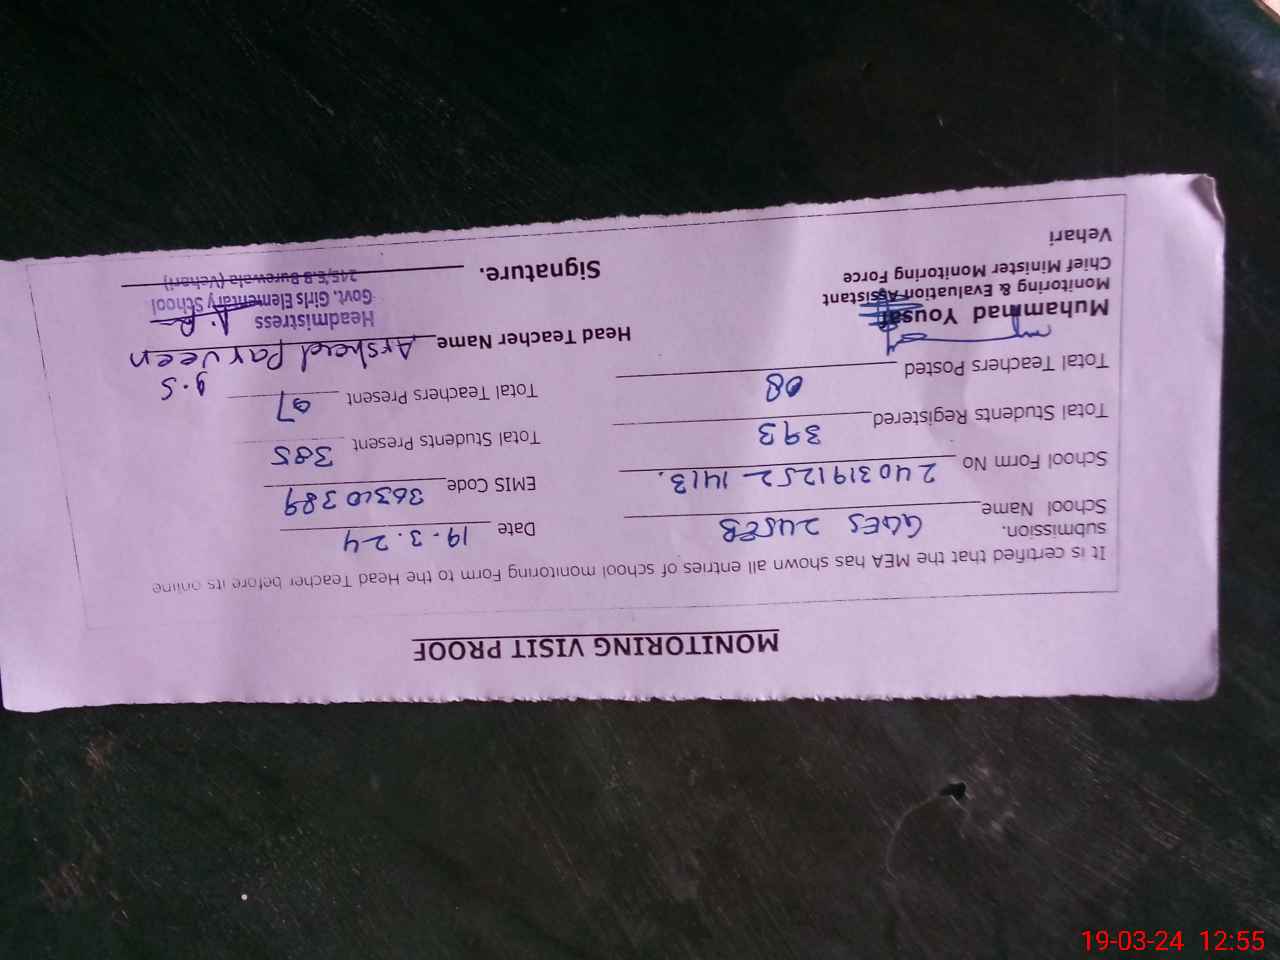 MONITORING VISIT PROOF
It is certified that the MEA has shown all entries of school monitoring Form to the Head Teacher before its online
submission.
School Name GGES 245EB Date 19.3.24
School Form No 240319125214113. EMIS Code 36310389
Total Students Registered 393 Total Students Present 385
Total Teachers Posted 08 Total Teachers Present 07
g.s
Muhammad Yousaf Head Teacher Name Arshad Parveen
Monitoring & Evaluation Assistant
Chief Minister Monitoring Force
Vehari
Signature.
Headmistress
Govt. Girls Elementary School
245/E.B Burewala (Vehari)
19-03-24 12:55